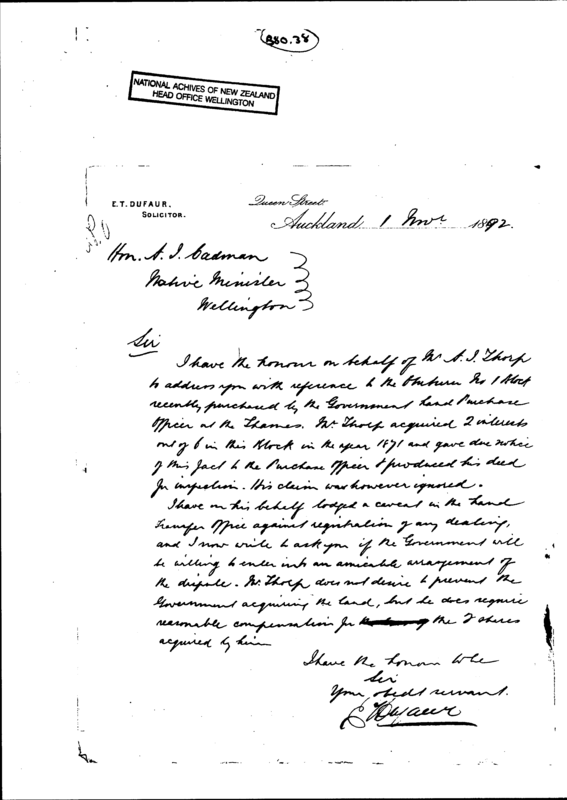 B80.38
NATIONAL ACHIVES OF NEW ZEALAND
HEAD OFFICE WELLINGTON
E.T. DUFAUR.
SOLICITOR.
Queen Street
Auckland 1 Novr 1892.
Hon. A. J. Cadman
Native Minister
Wellington
Sir
I have the honour on behalf of Mr A. J. Thorp
to address you with reference to the No 1 Block
recently purchased by the Government Land Purchase
Officer at the Thames. Mr Thorp acquired 2 interests
out of 6 in this Block in the year 1871 and gave due notice
of this fact to the Purchase Officer & produced his deed
for inspection. His claim was however ignored.
I have on his behalf lodged a caveat in the Land
Transfer Office against registration of any dealing,
and I now write to ask you if the Government will
be willing to enter into an amicable arrangement of
the dispute. Mr Thorp does not desire to prevent the
Government acquiring the land, but he does require
reasonable compensation for the 2 shares
acquired by him
I have the honour to be
Sir
Your obedt servant.
E T Dufaur